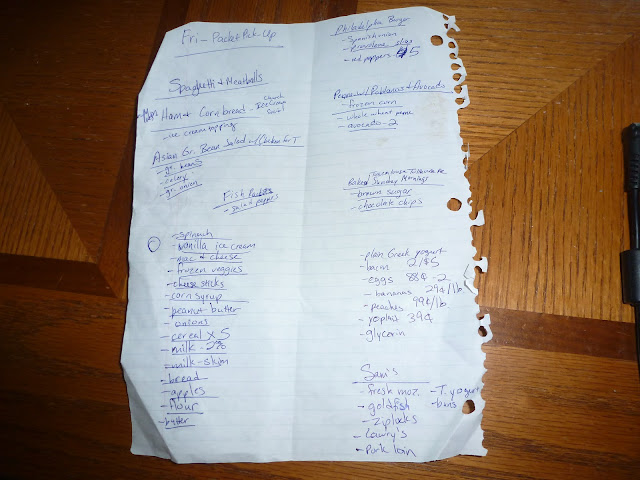 Fri - Packet Pick-Up
Spaghetti & Meatballs
Ham & Cornbread - Church Ice Cream Social
- ice cream topping
Asian Gr. Bean Salad w/ Chicken for T
- gr. beans
- celery
- gr. onion
Fish Packets
- peppers
- spinach
- vanilla ice cream
- mac & cheese
- frozen veggies
- cheese sticks
- corn syrup
- peanut butter
- onions
- cereal x 5
- milk - 2%
- milk - skim
- bread
- apples
- flour
- butter
Philadelphia Burger
- red peppers
w/ Poblanos & Avocados
- frozen corn
- whole wheat
- avocado - 2
Baked
- brown sugar
- chocolate chips
- plain Greek yogurt
- bacon 2/$5
- eggs 88¢ - 2
- bananas 29¢/lb
- peaches 99¢/lb
- yoplait 39¢
- glycerin
Sam's
- fresh moz. - T. yogurt
- goldfish - buns
- ziplocks
- Lawry's
- Pork loin